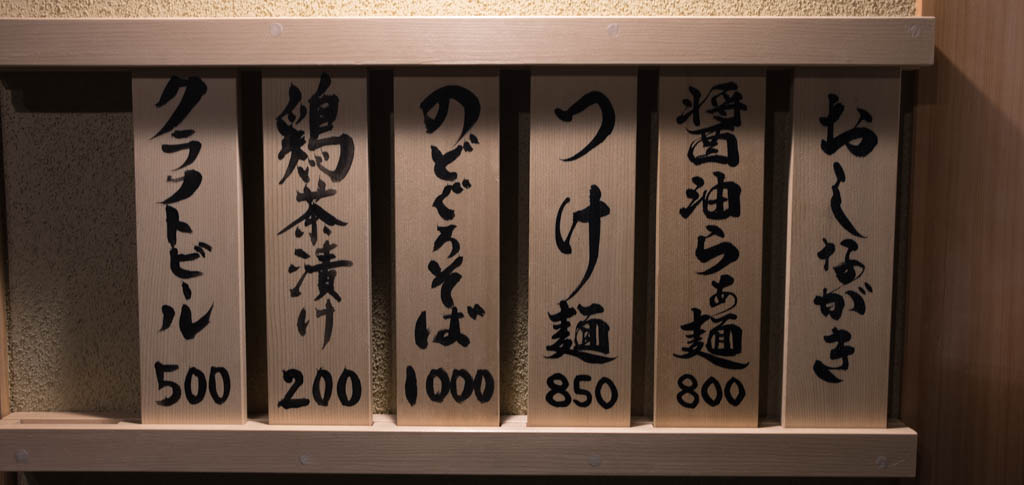 おしながき
醤油らぁ麺
800
つけ麺
850
のどぐろそば
1000
鶏茶漬け
200
クラフトビール
500